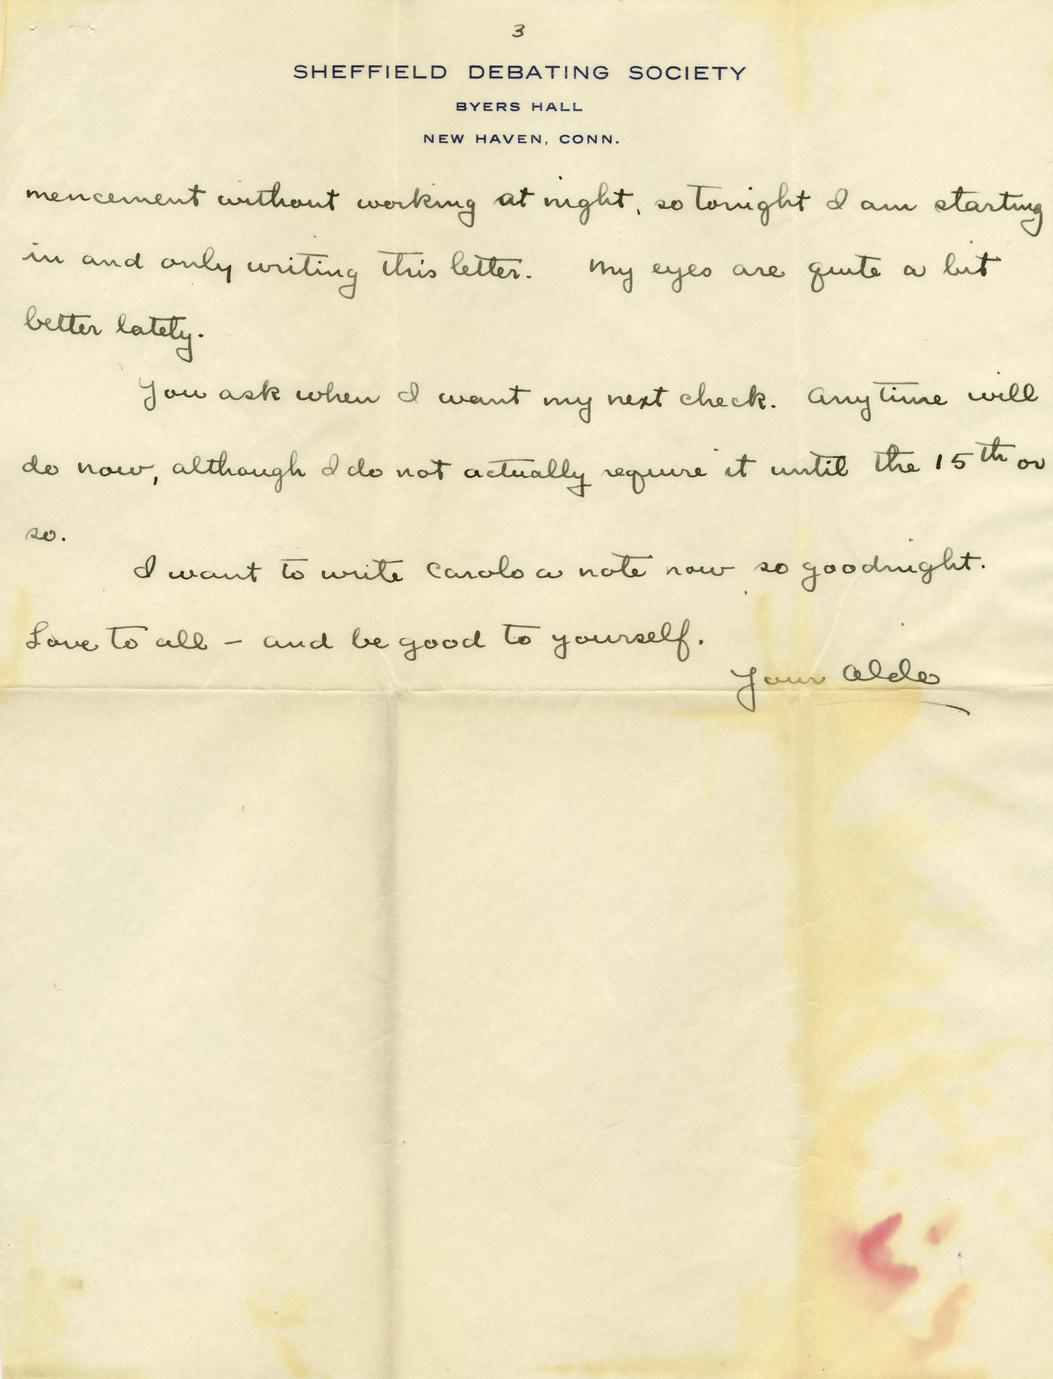 3
SHEFFIELD DEBATING SOCIETY
BYERS HALL
NEW HAVEN, CONN.
mencement without working at night, so tonight I am starting
in and only writing this letter. My eyes are quite a bit
better lately.
You ask when I want my next check. Anytime will
do now, although I do not actually require it until the 15th or
so.
I want to write Carolo a note now so goodnight.
Love to all – and be good to yourself.
Your Aldo